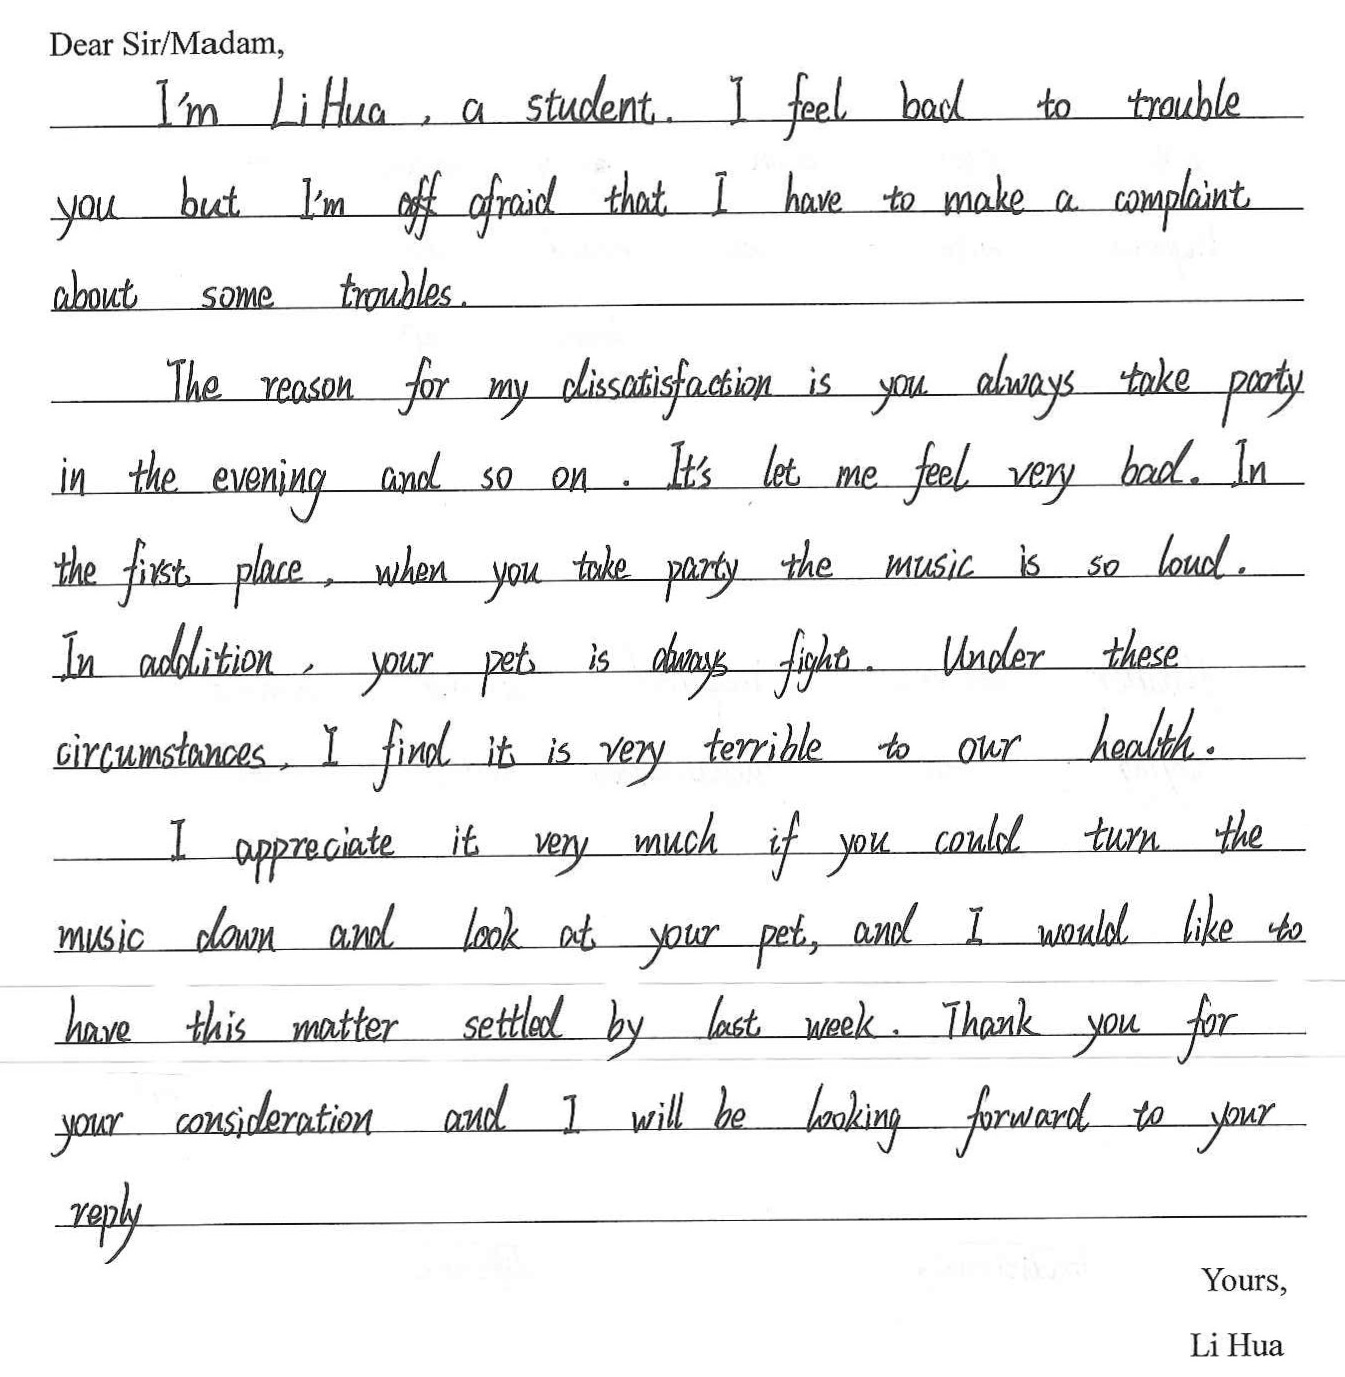 Dear Sir/Madam,
I'm Li Hua, a student. I feel bad to trouble
you but I'm afraid that I have to make a complaint
about some troubles.
The reason for my dissatisfaction is you always take party
in the evening and so on. It's let me feel very bad. In
the first place, when you take party the music is so loud.
In addition, your pet is always fight. Under these
circumstances, I find it is very terrible to our health.
I appreciate it very much if you could turn the
music down and look at your pet, and I would like to
have this matter settled by last week. Thank you for
your consideration and I will be looking forward to your
reply
Yours,
Li Hua